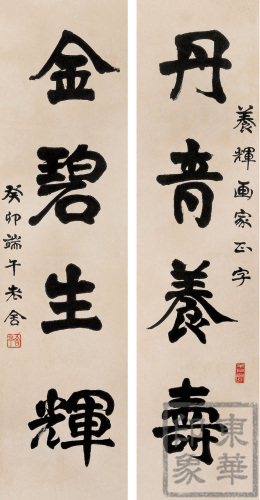 養輝画家正字
丹青養壽
金碧生輝
癸卯端午老舍
東華
印象